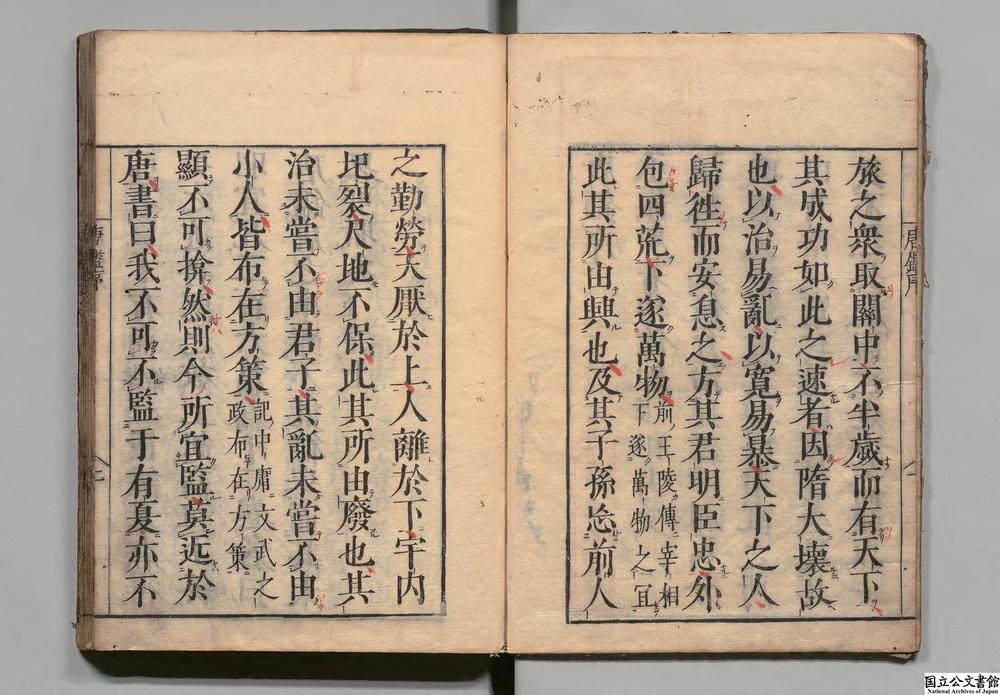 旅之衆取關中不半歲而有天下
其成功如此之速者因隋大壞故
也以治易亂以寬易暴天下之人
歸徃而安息之方其君明臣忠外
包四荒下遂萬物前王陵傳宰相下遂萬物之宜
此其所由興也及其子孫忘前人
之勤勞天厭於上人離於下宇内
圮裂尺地不保此其所由廢也其
治未嘗不由君子其亂未嘗不由
小人皆布在方策記中庸文武之政布在方策
顯不可揜然則今所宜監莫近於
唐書曰我不可不監于有夏亦不
唐鑑序
二
国立公文書館
National Archives of Japan